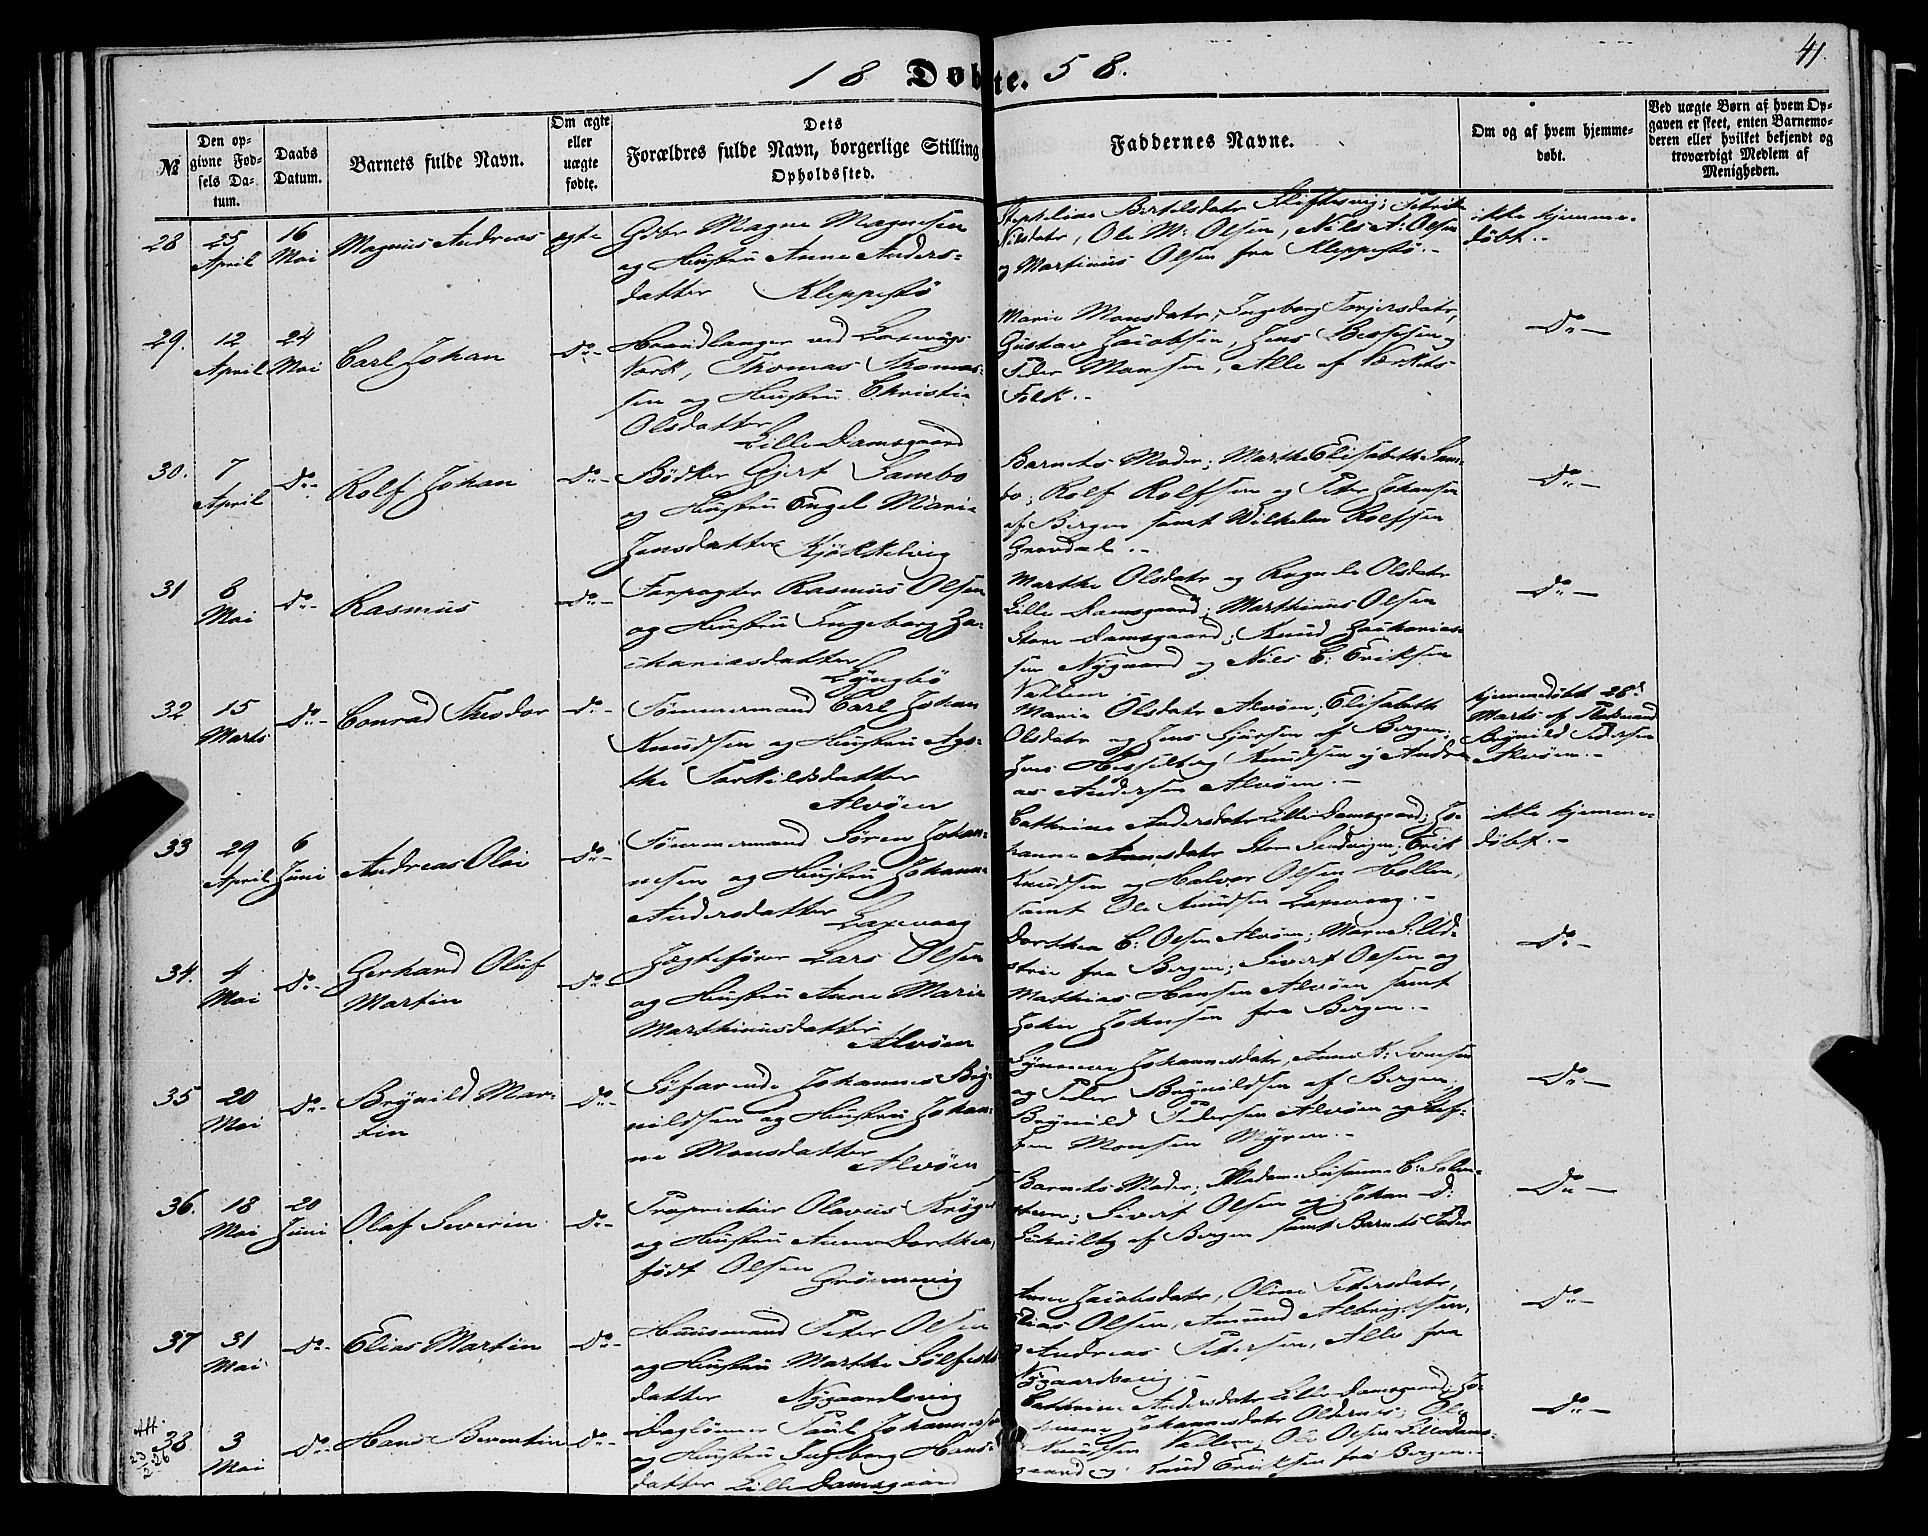 41.
18 Døbte. 58.
№
Den opgivne Fødsels Datum.
Daabs Datum.
Barnets fulde Navn.
Om ægte eller uægte fødte.
Dets Forældres fulde Navn, borgerlige Stilling Opholdssted.
Faddernes Navne.
Om og af hvem hjemmedøbt.
Ved uægte Børn af hvem Opgaven er skeet, enten Barnemoderen eller hvilket bekjendt og troværdigt Medlem af Menigheden.
28 25 April 16 Mai Magnus Andreas ægte
Gdbr Magne Magnesen
og Hustru Anne Anders-
datter Kleppestø
Bertelsdatr
Nilsdatr, Ole M: Olsen, Nils A: Olsen
og Martinus Olsen fra Kleppestø.-
ikke hjemme-
døbt.-
29. 12 April 24 Mai Carl Johan Do-
Haandlanger ved Laxevaags
Værk, Thomas Thomas-
sen og Hustru Christi
Olsdatter
Lille Damsgaard
Marie Monsdatr, Ingeborg Torjersdatr,
Gustav Jacobsen, Jens
Peder Monsen, Alle af Værkets
Folk.-
Do-
30. 7 April Do- Rolf Johan Do-
Bødker Gjert Sambo
og Hustru Engel Marie
Jansdatter Kjøkkelvig
Barnets Moder; Marthe Elisabeth Sam-
bo; Rolf Rolfsen og Peter Johansen
af Bergen samt Wilhelm Rolfsen
Gravdal.-
Do-
31 8 Mai Do- Rasmus Do-
Forpagter Rasmus Olsen
og Hustru Ingeborg Za-
chariasdatter
Lyngbø
Marthe Olsdatr og Ragnele Olsdatr
Lille Damsgaard; Marthinus Olsen
Store Damsgaard; Knud Zacharias-
sen Nygaard og Nils C: Eriksen
Vallem
Do-
32 15 Marts Do- Conrad Theodor Do-
Tømmermand Carl Johan
Knudsen og Hustru Aga-
the Torkildsdatter
Alvøen
Marie Olsdatr Alvøen; Elisabeth
Olsdatr og Jens af Bergen;
Jens Hesselberg Knudsen og Andre-
as Andersen Alvøen.-
hjemmedøbt 28d
Marts af
Brynild Pedersen
Alvøen.-
33 29 April 6 Juni Andreas Olai Do-
Tømmermand Søren Johan-
nesen og Hustru Johanne
Andersdatter
Laxevaag
Cathrine Andersdatr Lille Damsgaard; Jo-
hanne Store Sandvigen; Erik
Knudsen og Halvor Olsen Hollen,
samt Ole Knudsen Laxevaag.-
ikke hjemme-
døbt.-
34. 4 Mai Do- Gerhard Oluf
Martin Do-
Jægtefører Lars Olsen
og Hustru Anne Marie
Marthinusdatter
Alvøen
Dorthea C: Olsen Alvøen; Maren
fra Bergen; Sivert Olsen og
Mathias Hansen Alvøen samt
John Johnsen fra Bergen.-
Do-
35 20 Mai Do- Brynild Mar-
tin Do-
Søfarende Johannes Bry-
nildsen og Hustru Johan-
ne Monsdatter
Alvøen
Johannesdatr, Anne K:
og Peder Brynildsen af Bergen;
Brynild Pedersen Alvøen og Stef-
fen Monsen Myren.-
Do-
36. 18 Mai 20 Juni Olaf Severin Do-
Proprietair Olavus Krøger
og Hustru Anne Dorthea,
født Olsen
Grønnevig
Barnets Moder; Madame Susanne C:
Sivert Olsen og Johan D:
af Bergen samt Barnets Fader
Do-
37 31 Mai Do- Elias Martin Do-
Huusmand Peter Olsen
og Hustru Marthe Sølfests
datter Nygaardsvig
Anne Jacobsdatr, Oline Petersdatr,
Elias Olsen, Amund Albrigtsen,
og Andreas Petersen, Alle fra
Nygaardsvig.-
Do-
38 3 Mai Do- Hans Berentin Do-
Att.
23/2 26
Daglønner Paul Johannesen
og Hustru Ingeborg Hans-
datter Lille Damsgaard
Cathrine Andersdatr Lille Damsgaard; Jo-
hanne Johannesdatr Oldernes; Ole
Knudsen Vallem, Ole Olsen Lille Dams-
gaard og Knud Eriksen fra Bergen.-
Do-